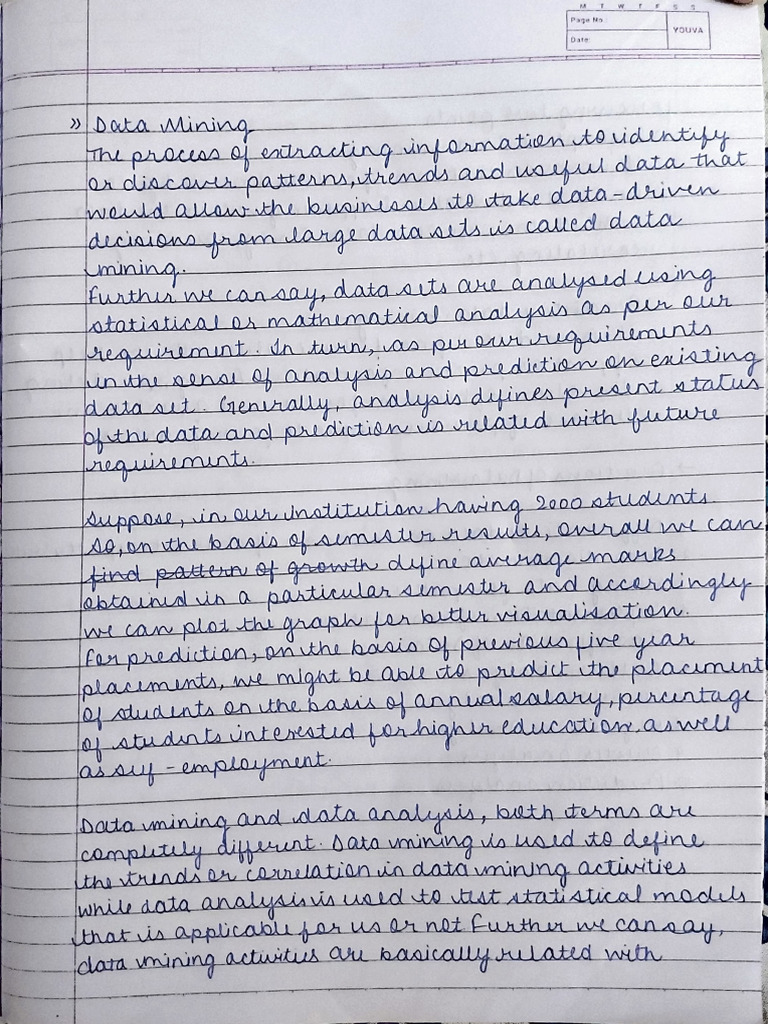 M T W T F S S
Page No.:
YOUVA
Date:
» Data Mining
The process of extracting information to identify
or discover patterns, trends and useful data that
would allow the businesses to take data-driven
decisions from large data sets is called data
mining.
Further we can say, data sets are analysed using
statistical or mathematical analysis as per our
requirement. In turn, as per our requirements
in the sense of analysis and prediction on existing
data set. Generally, analysis defines present status
of the data and prediction is related with future
requirements.
Suppose, in our institution having 2000 students.
So, on the basis of semester results, overall we can
find pattern of growth define average marks
obtained in a particular semester and accordingly
we can plot the graph for better visualisation.
For prediction, on the basis of previous five year
placements, we might be able to predict the placement
of students on the basis of annual salary, percentage
of students interested for higher education as well
as self-employment.
Data mining and data analysis, both terms are
completely different. Data mining is used to define
the trends or correlation in data mining activities
while data analysis is used to test statistical models
that is applicable for us or not Further we can say,
data mining activities are basically related with